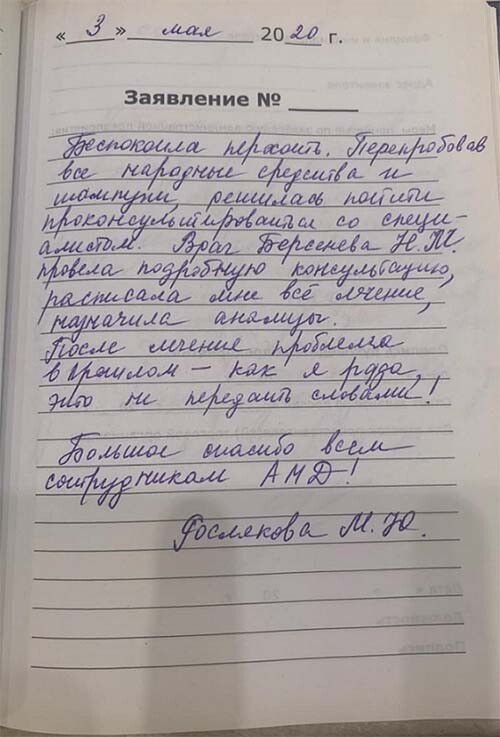 « 3 » мая 2020 г.
Заявление №
Беспокоила перхоть. Перепробовав
все народные средства и
шампуни, решилась пойти
проконсультироваться со специ-
алистом. Врач Берсенева Н.М.
провела подробную консультацию,
расписала мне всё лчение,
назначила анализы.
После лчение проблема
в прошлом – как я рада,
это не передать словами!
Большое спасибо всем
сотрудникам АМД!
Рослякова М.Ю.